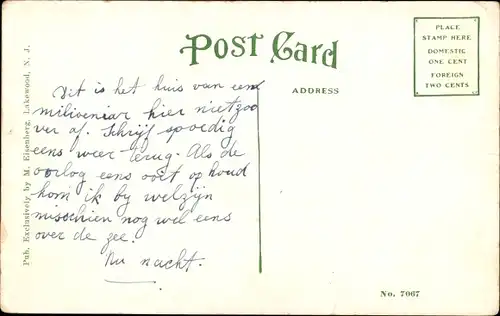 Post Card
PLACE
STAMP HERE
DOMESTIC
ONE CENT
FOREIGN
TWO CENTS
ADDRESS
Pub. Exclusively by M. Eisenberg, Lakewood, N. J.
Dit is het huis van een
milioeniar hier niet zoo
ver af. Schrijf spoedig
eens weer terug. Als de
oorlog eens ooit op houd
kom ik by welzijn
misschien nog wel eens
over de zee.
Nu nacht.
No. 7067